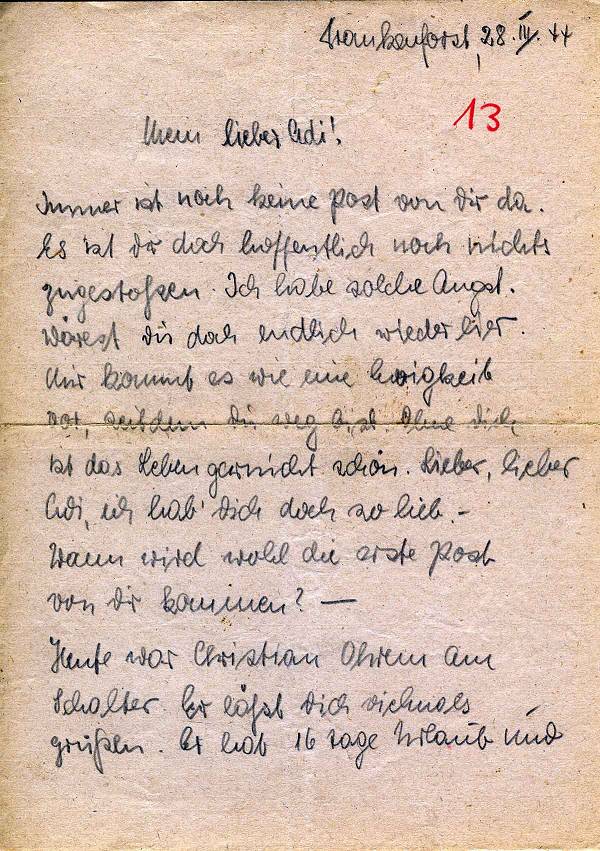 Frankenforst, 28.III.44
13
Mein lieber Adi!
Immer ist noch keine Post von Dir da.
Es ist dir doch hoffentlich noch nichts
zugestoßen. Ich habe solche Angst.
Wärest Du doch endlich wieder hier.
Mir kommt es wie eine Ewigkeit
vor, seitdem Du weg bist. Ohne dich
ist das Leben garnicht schön. Lieber, lieber
Adi, ich hab' Dich doch so lieb.-
Wann wird wohl die erste Post
von Dir kommen? —
Heute war Christian Ohrem am
Schalter. Er läßt Dich vielmals
grüßen. Er hat 16 Tage Urlaub und